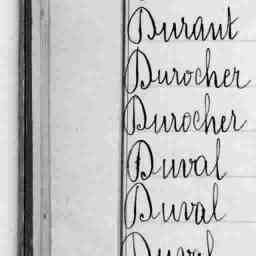 Durant
Durocher
Durocher
Duval
Duval